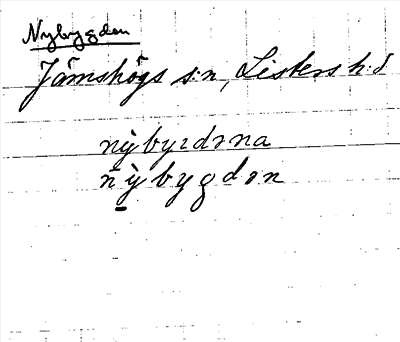 Nybygden
Jämshögs s:n, Listers h:d
nỳbyɪdəna
nỳbygdən